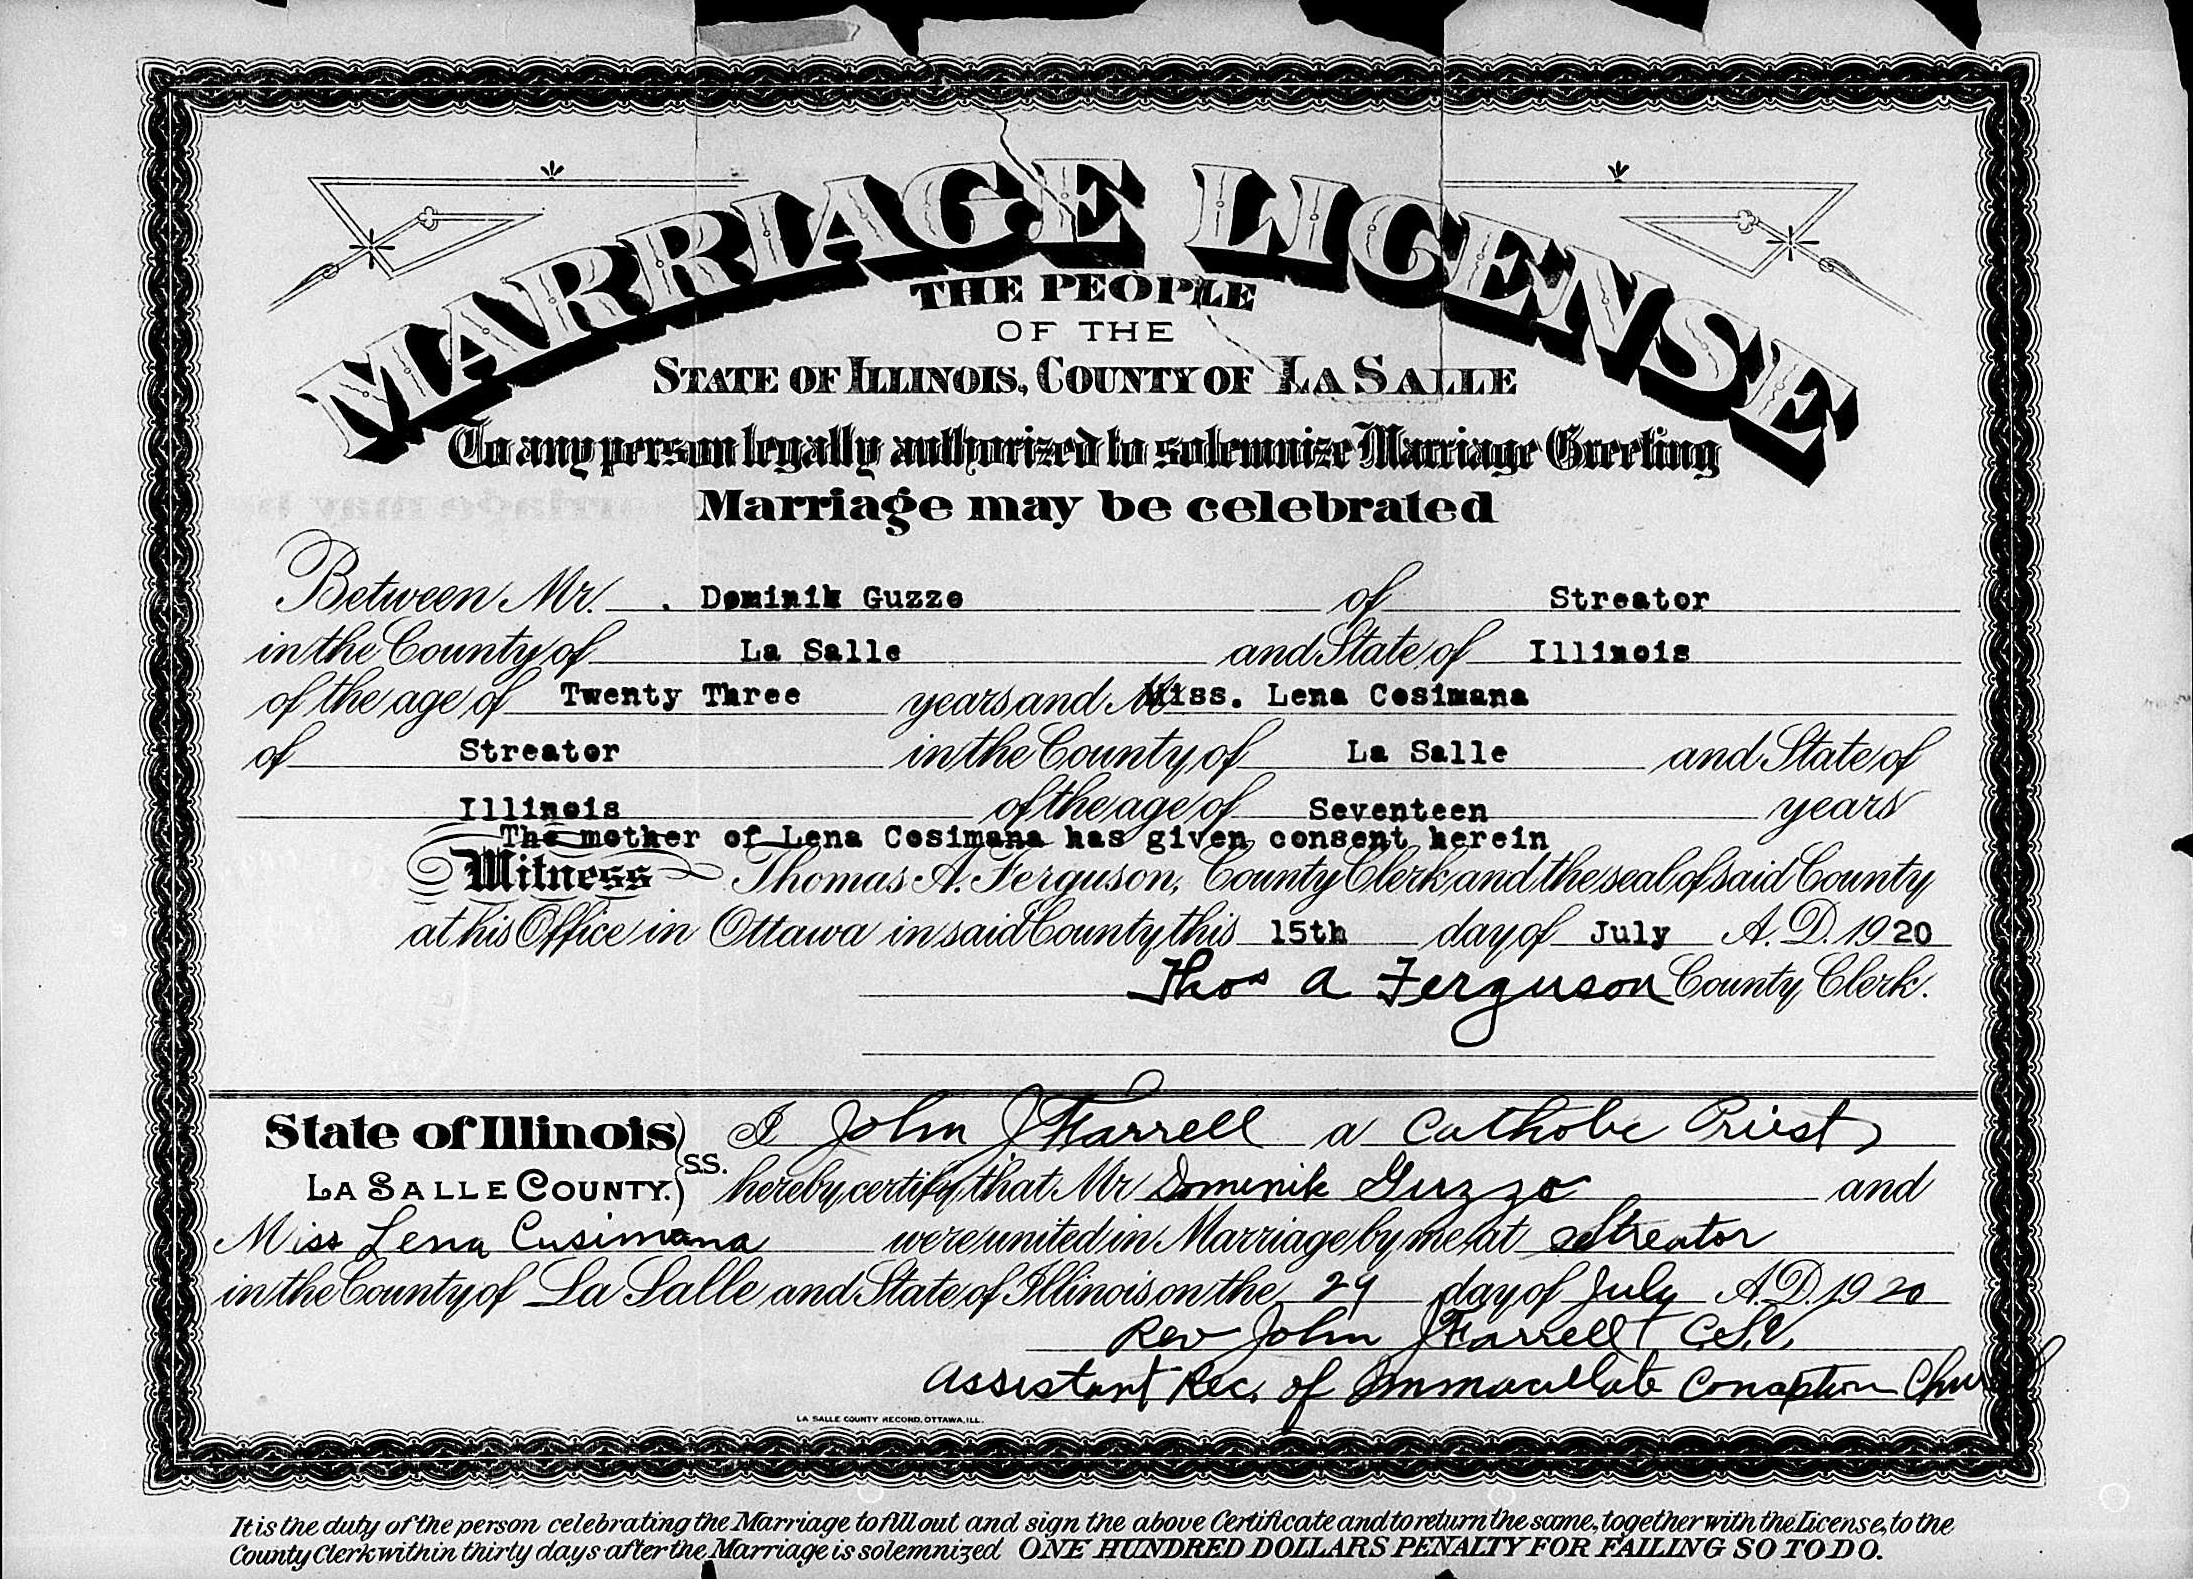 MARRIAGE LICENSE
THE PEOPLE
OF THE
STATE OF ILLINOIS, COUNTY OF LA SALLE
To any person legally authorized to solemnize Marriage Greeting
Marriage may be celebrated
Between Mr. . Dominik Guzzo of Streator
in the County of La Salle and State of Illinois
of the age of Twenty Three years and M Miss. Lena Cosimana
of Streator in the County of La Salle and State of
Illinois of the age of Seventeen years
The mother of Lena Cosimana has given consent herein
Witness Thomas A. Ferguson, County Clerk and the seal of said County
at his Office in Ottawa in said County this 15th day of July A.D. 1920
Thos A Ferguson County Clerk.
State of Illinois I John J Farrell a Catholic Priest
LA SALLE COUNTY. S.S. hereby certify that Mr Dominik Guzzo and
Miss Lena Cusimana were united in Marriage by me at Streator
in the County of La Salle and State of Illinois on the 29 day of July A.D. 1920
Rev John J Farrell C.S.V.
Assistant Rec. of Immaculate Conception Church
LA SALLE COUNTY RECORD, OTTAWA, ILL.
It is the duty of the person celebrating the Marriage to fill out and sign the above Certificate and to return the same, together with the License, to the
County Clerk within thirty days after the Marriage is solemnized ONE HUNDRED DOLLARS PENALTY FOR FAILING SO TO DO.